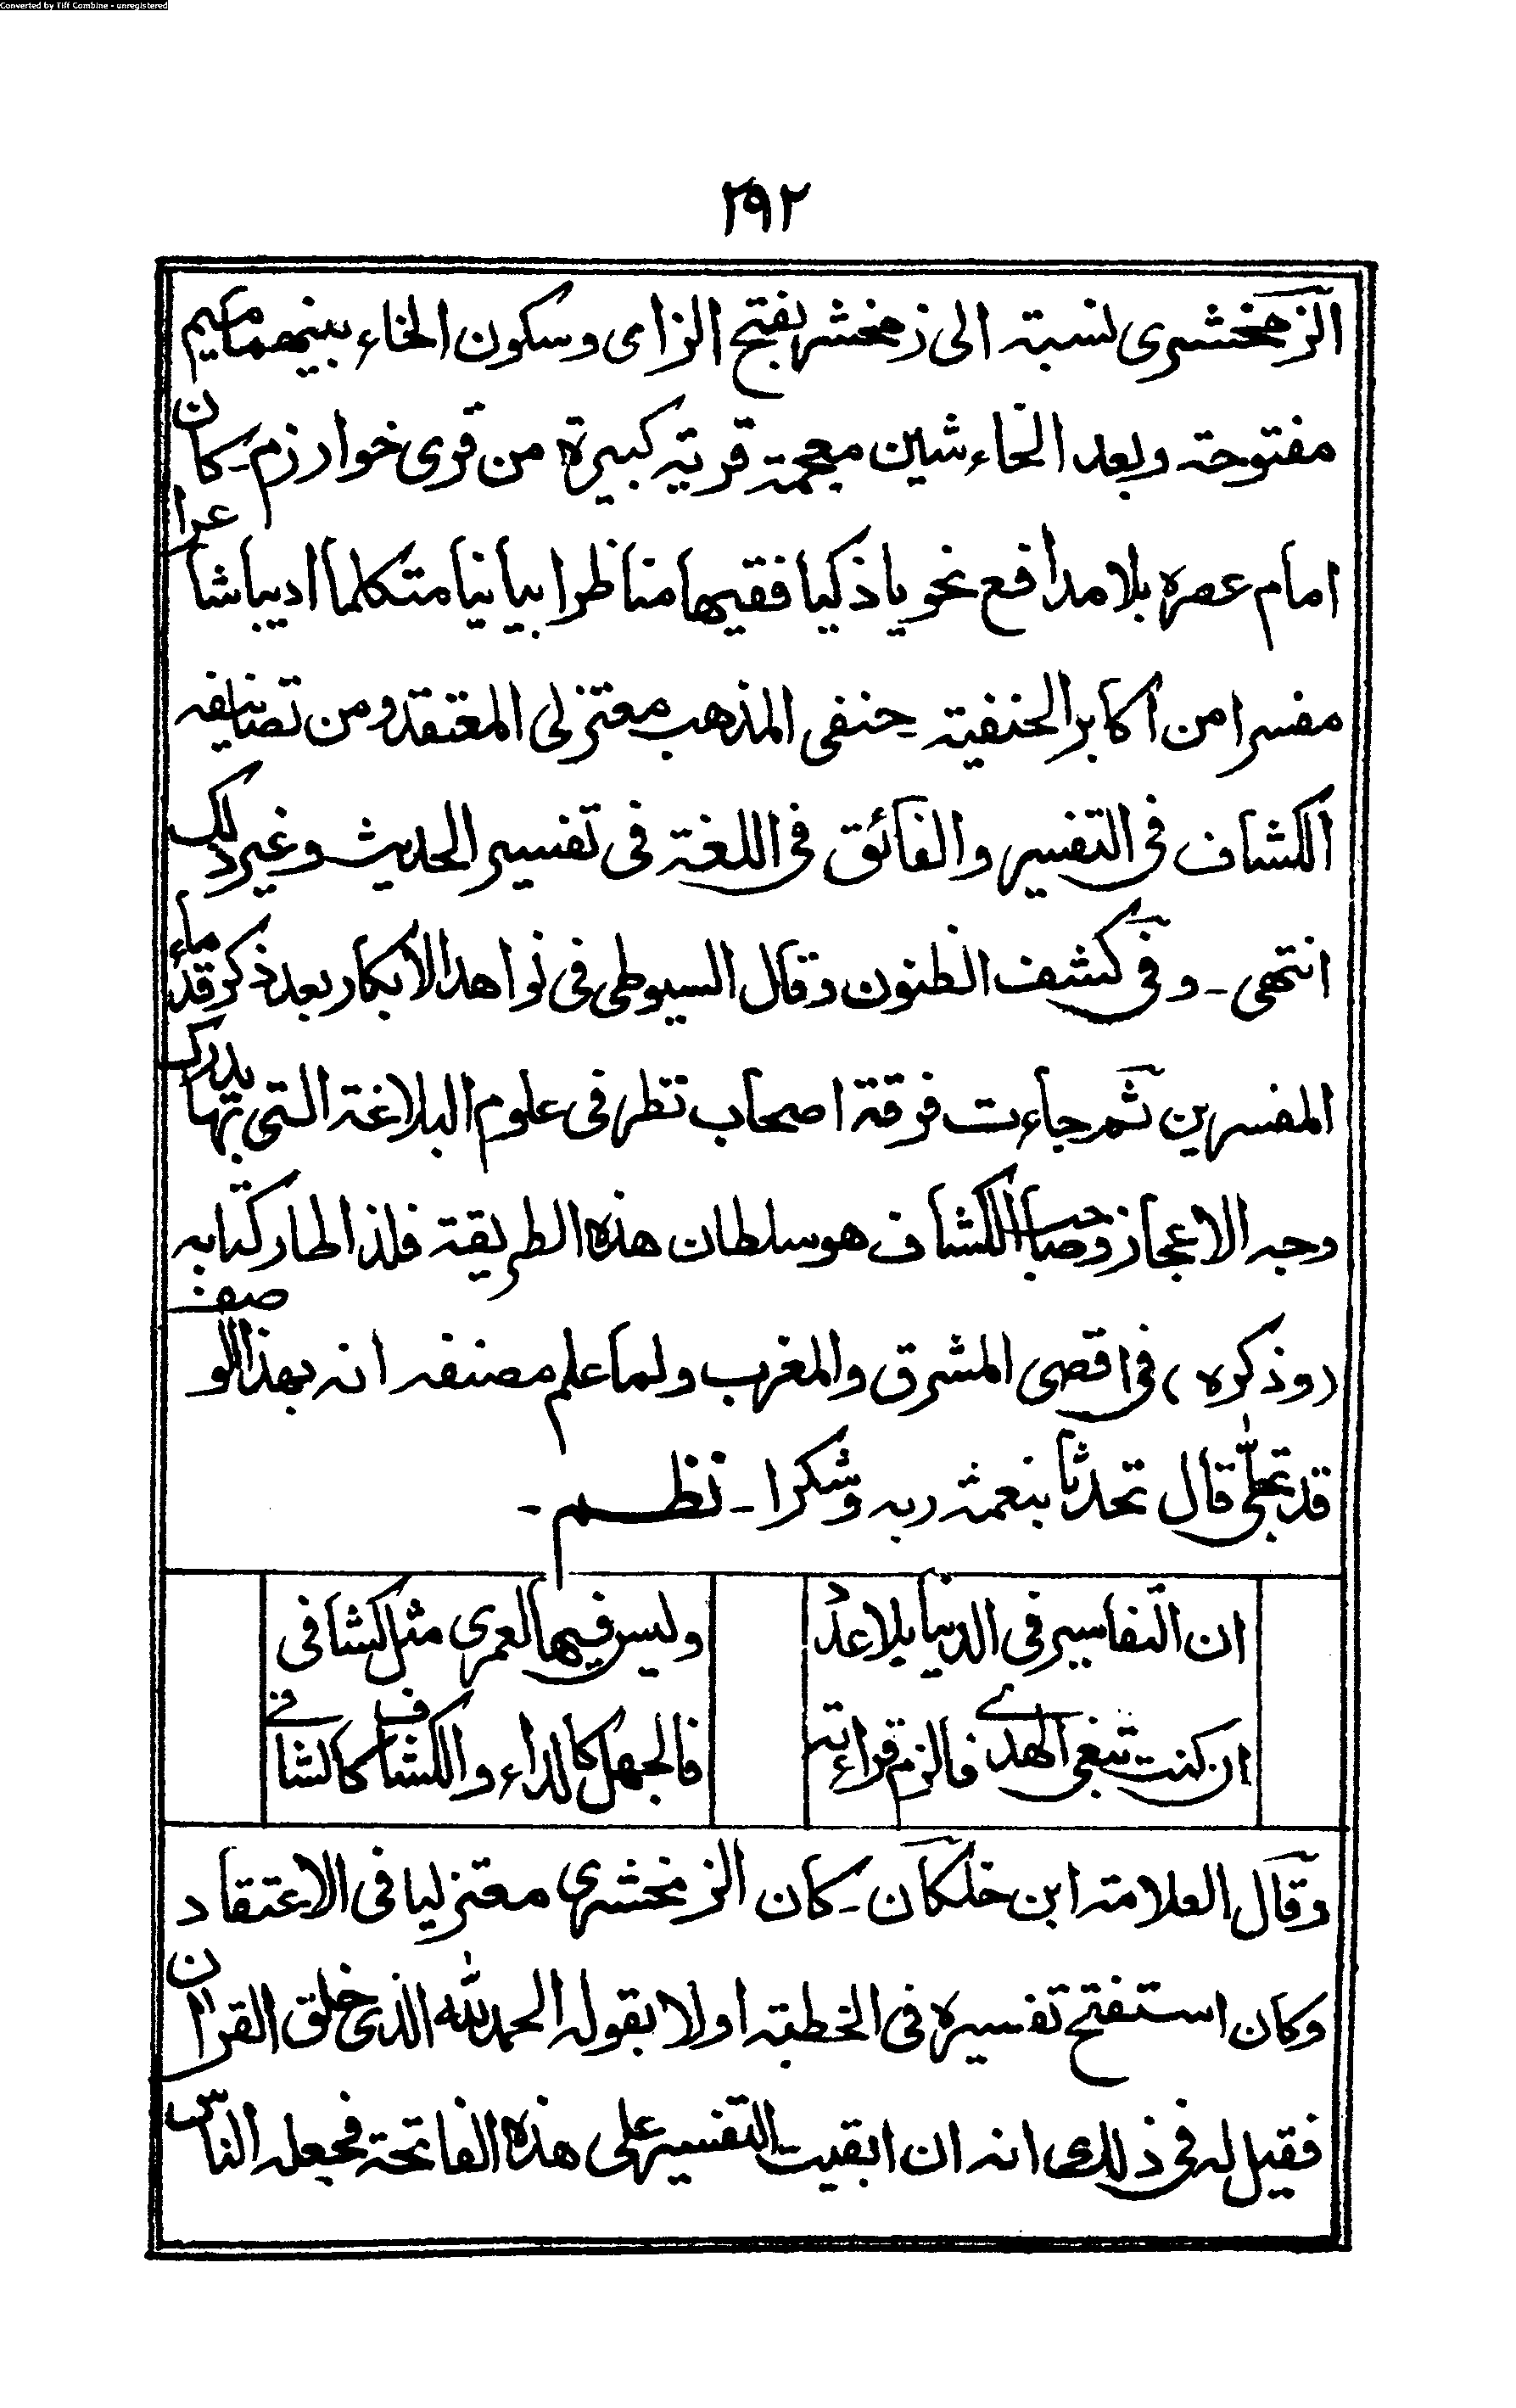 Converted by Tiff Combine - unregistered
٢٩٢
الزمخشری نسبة الی زمخشر بفتح الزای وسکون الخاء بینهما میم
مفتوحة وبعد الخاء شین معجمة قریة کبیرة من قری خوارزم۔ کان
امام عصره بلا مدافع نحویا ذکیا فقیها مناظرا بیانیا متکلما ادیبا شاعرا
مفسرا من اکابر الحنفیة۔ حنفی المذهب معتزلی المعتقد ومن تصانیفه
الکشاف فی التفسیر والفائق فی اللغة فی تفسیر الحدیث وغیر ذلک
انتهی۔ وفی کشف الظنون وقال السیوطی فی نواهد الابکار بعد ذکر قدماء
المفسرین ثم جاءت فرقة اصحاب نظر فی علوم البلاغة التی بها یدرک
وجه الاعجاز وصاحب الکشاف هو سلطان هذه الطریقة فلذا طار کتابه
(وذکره) فی اقصی المشرق والمغرب ولما علم مصنفه انه بهذا الوصف
قد تجلّی قال تحدثا بنعمة ربه وشکرا۔ نظم۔
ان التفاسیر فی الدنیا بلا عدد ولیس فیها لعمری مثل کشافی
ان کنت تبغی الهدے فالزم قراءته فالجهل کالداء والکشاف کالشافے
وقال العلامة ابن خلکان۔ کان الزمخشری معتزلیا فی الاعتقاد
وکان استفتح تفسیره فی الخطبة اولا بقوله الحمد لله الذی خلق القرآن
فقیل له فی ذلک انه ان ابقیت التفسیر علی هذه الفاتحة فجعله الناس